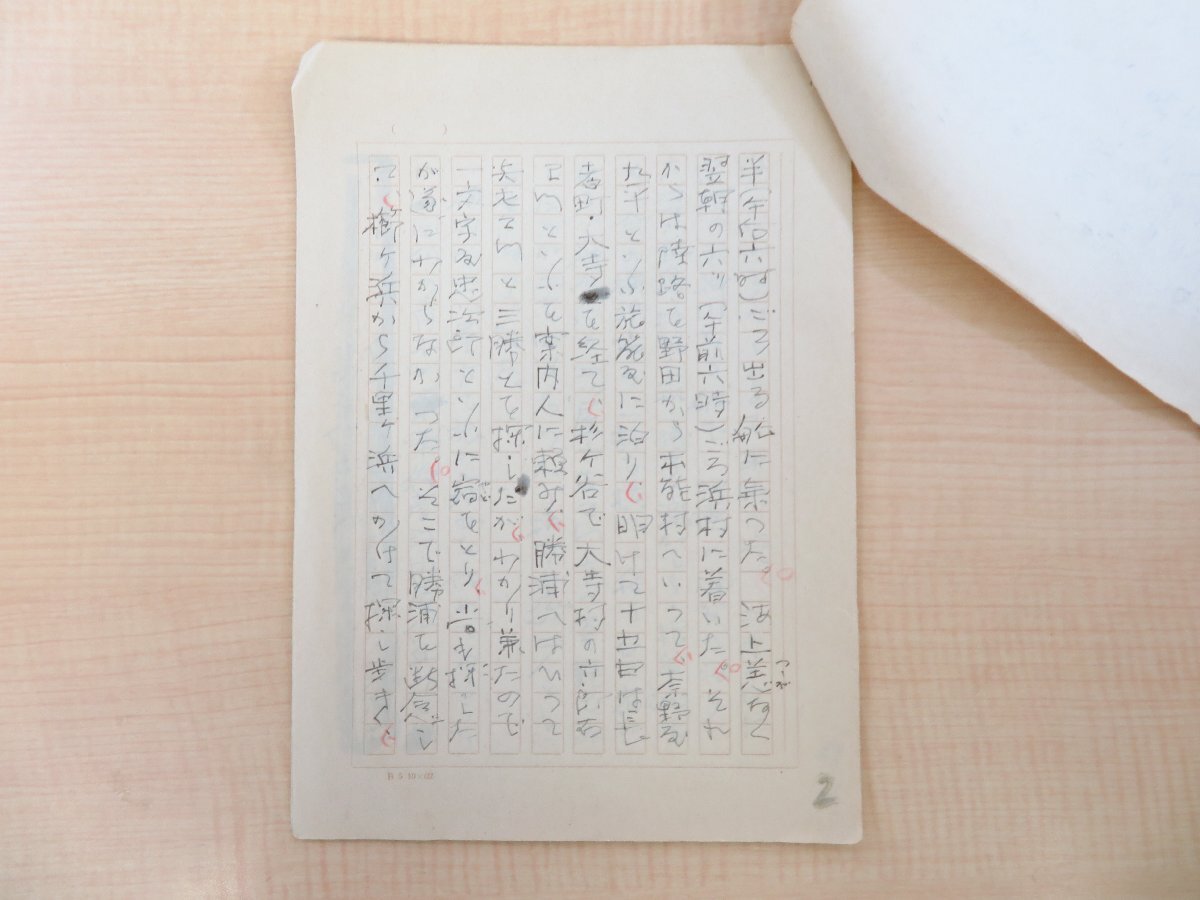 半(午后六時)ごろ出る船に乗つた。海上恙なく
つゝが
翌朝の六ツ(午前六時)ごろ浜村に着いた。それ
からは陸路を野田から本能村へいつて、奈野屋
九平といふ旅籠に泊り、明けて十五日は長
者町・大寺を経て、杉ケ谷で大寺村の六郎右
エ門といふを案内人に頼み、勝浦へはいつて
兵七エ門と三勝とを探したが、わかり兼たので
一文字屋忠次郎といふに宿をとり、尚も探した
が遂にわからなかつた。そこで勝浦を断念し
て、櫛ケ浜から千里ケ浜へかけて探し歩き、
B5 10×22
2